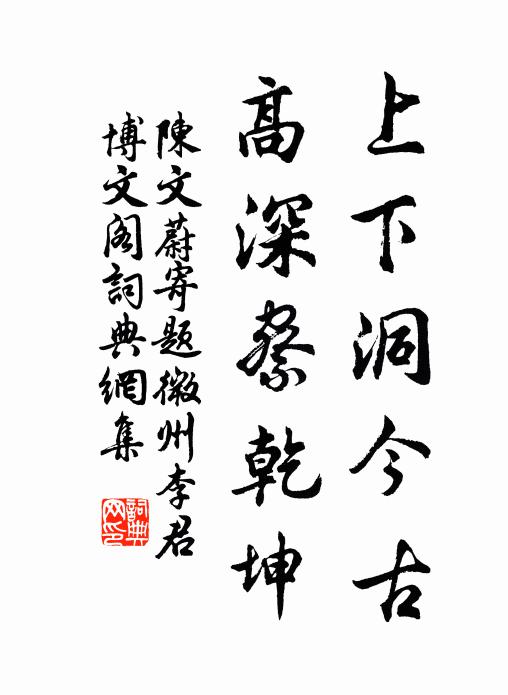 上下洞今古
高深察乾坤
陳文蔚寄題徽州李君
博文阁詞典網集
詞典
网印